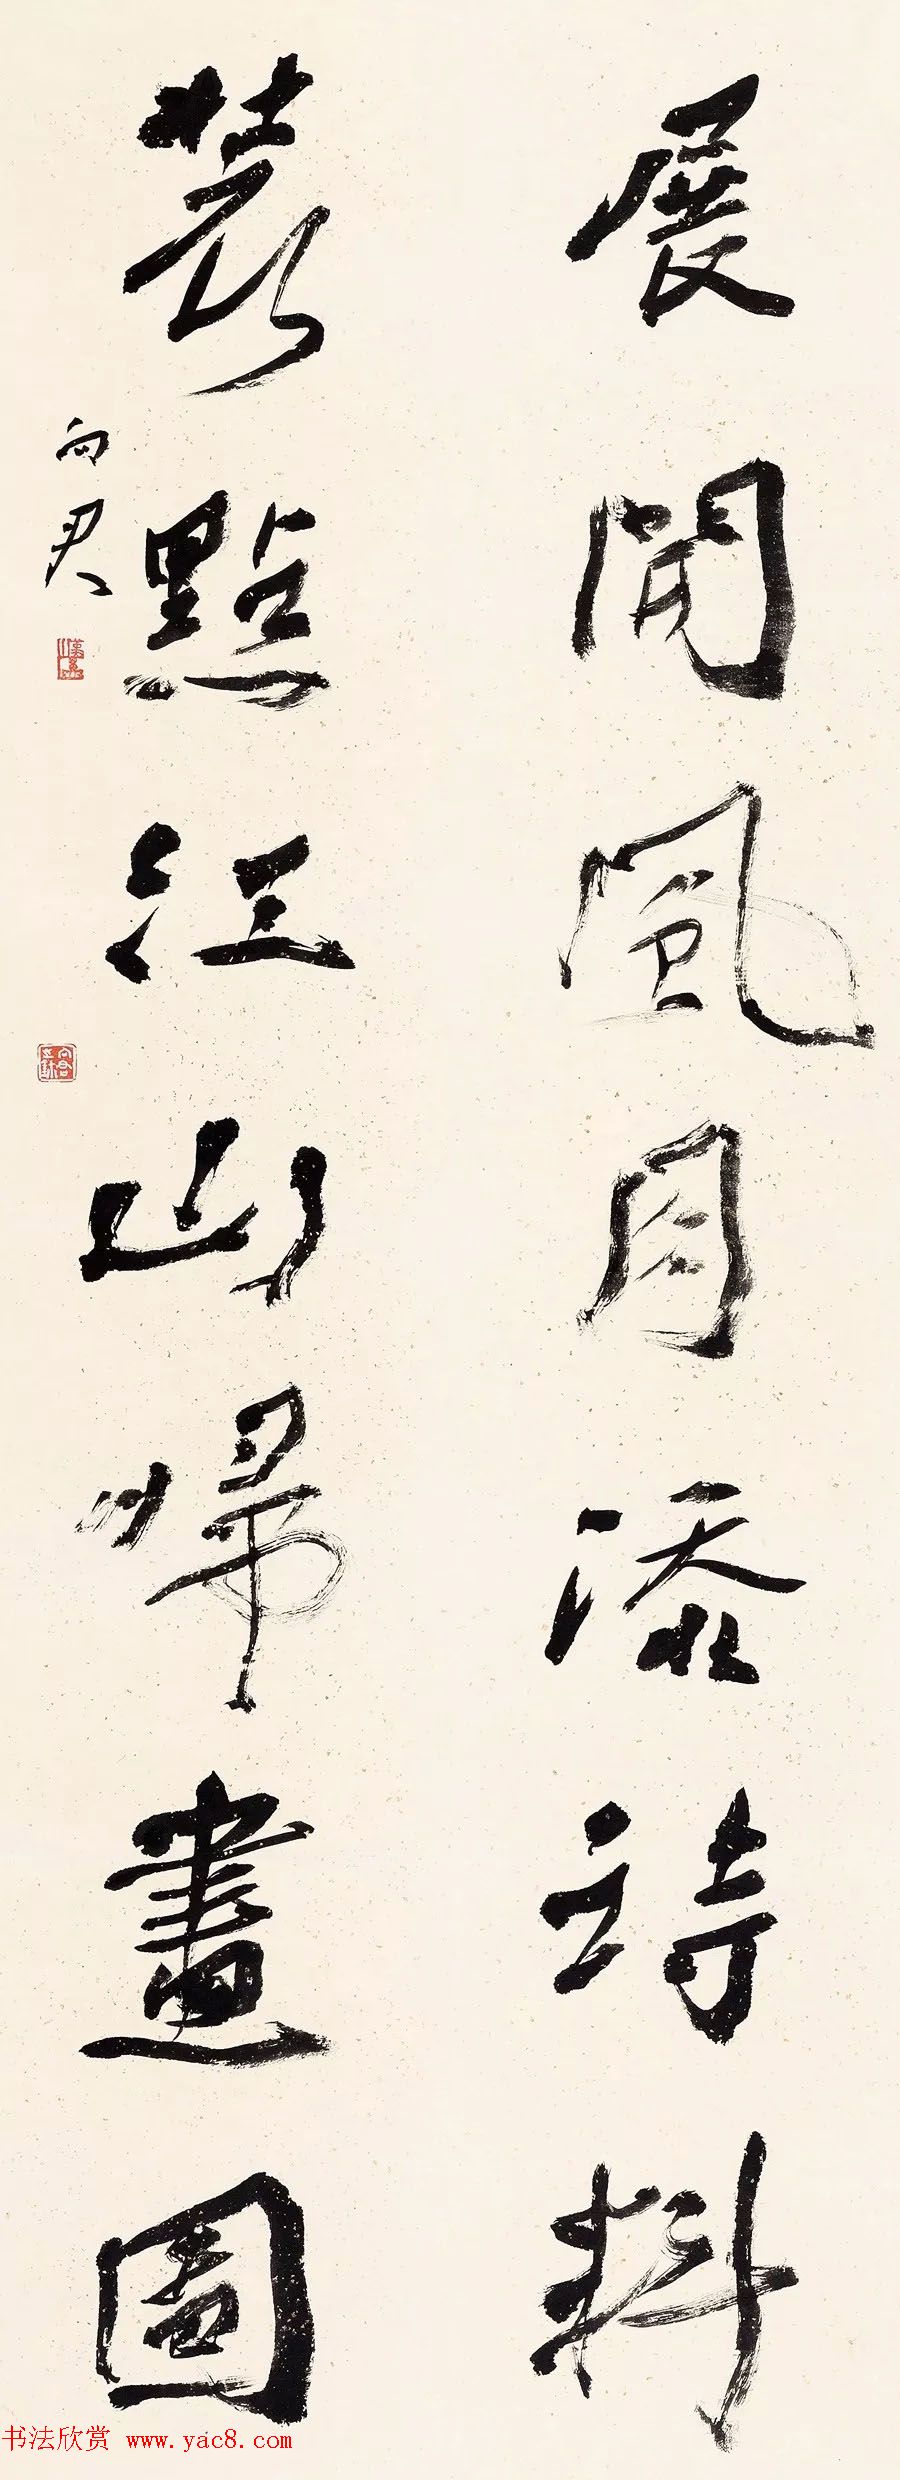 展開風月添詩料
裝點江山歸畫圖
向君
书法欣赏 www.yac8.com